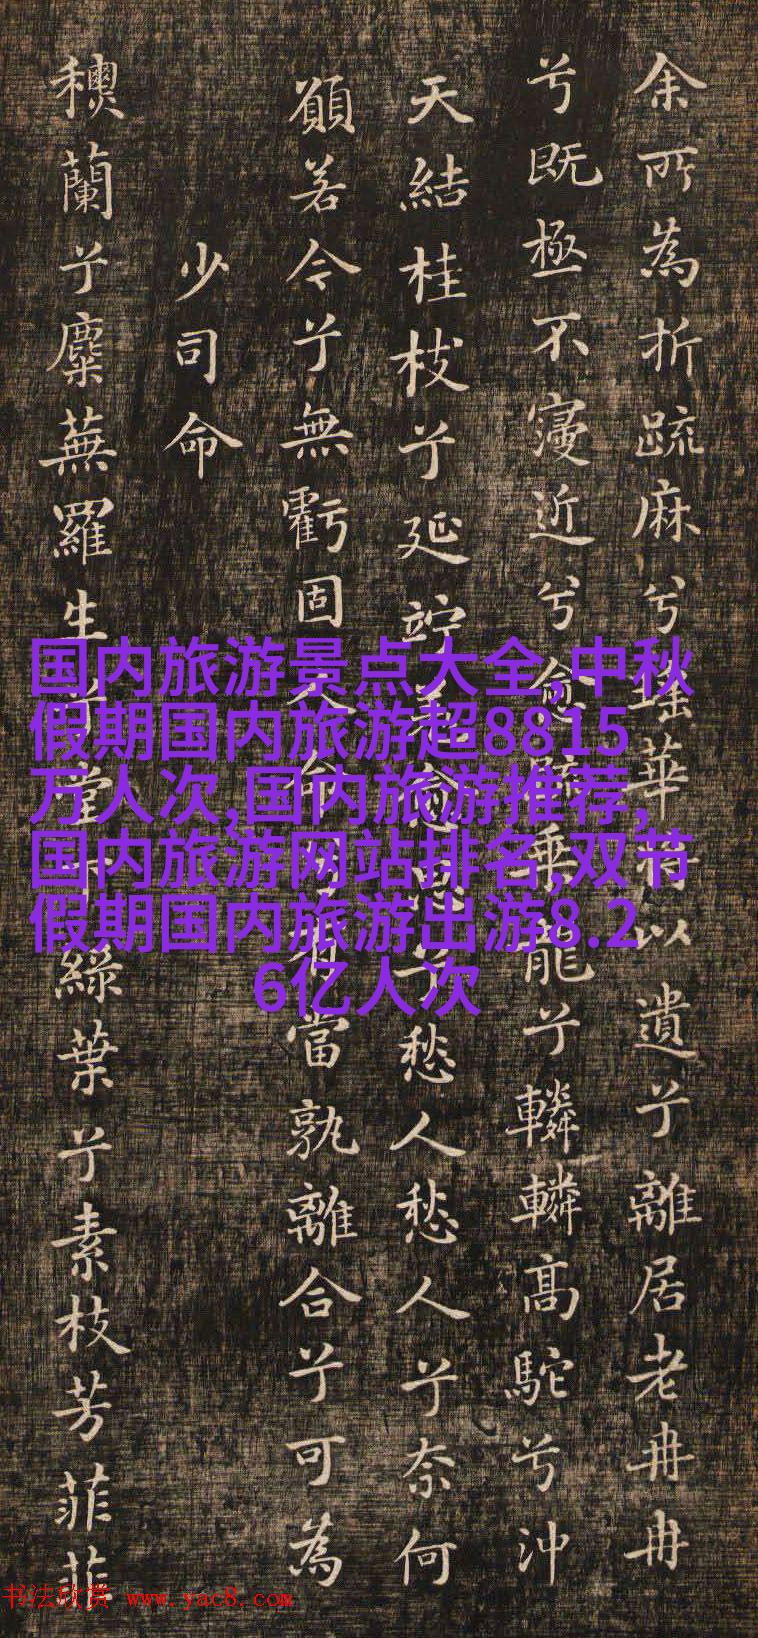 余所為折疏麻兮瑤華將以遺兮離居老冉冉
兮既極不寖近兮愈疏乘龍兮轔轔高駝兮沖
天結桂枝兮延竚羌愈思兮愁人愁人兮奈何
願若今兮無虧固人命兮有當孰離合兮可為
少司命
蘭兮麋蕪羅生兮堂下綠葉兮素枝芳菲菲
国内旅游景点大全,中秋
假期国内旅游超8815
万人次,国内旅游推荐,
国内旅游网站排名,双节
假期国内旅游出游8.2
6亿人次
书法欣赏 www.yac8.com